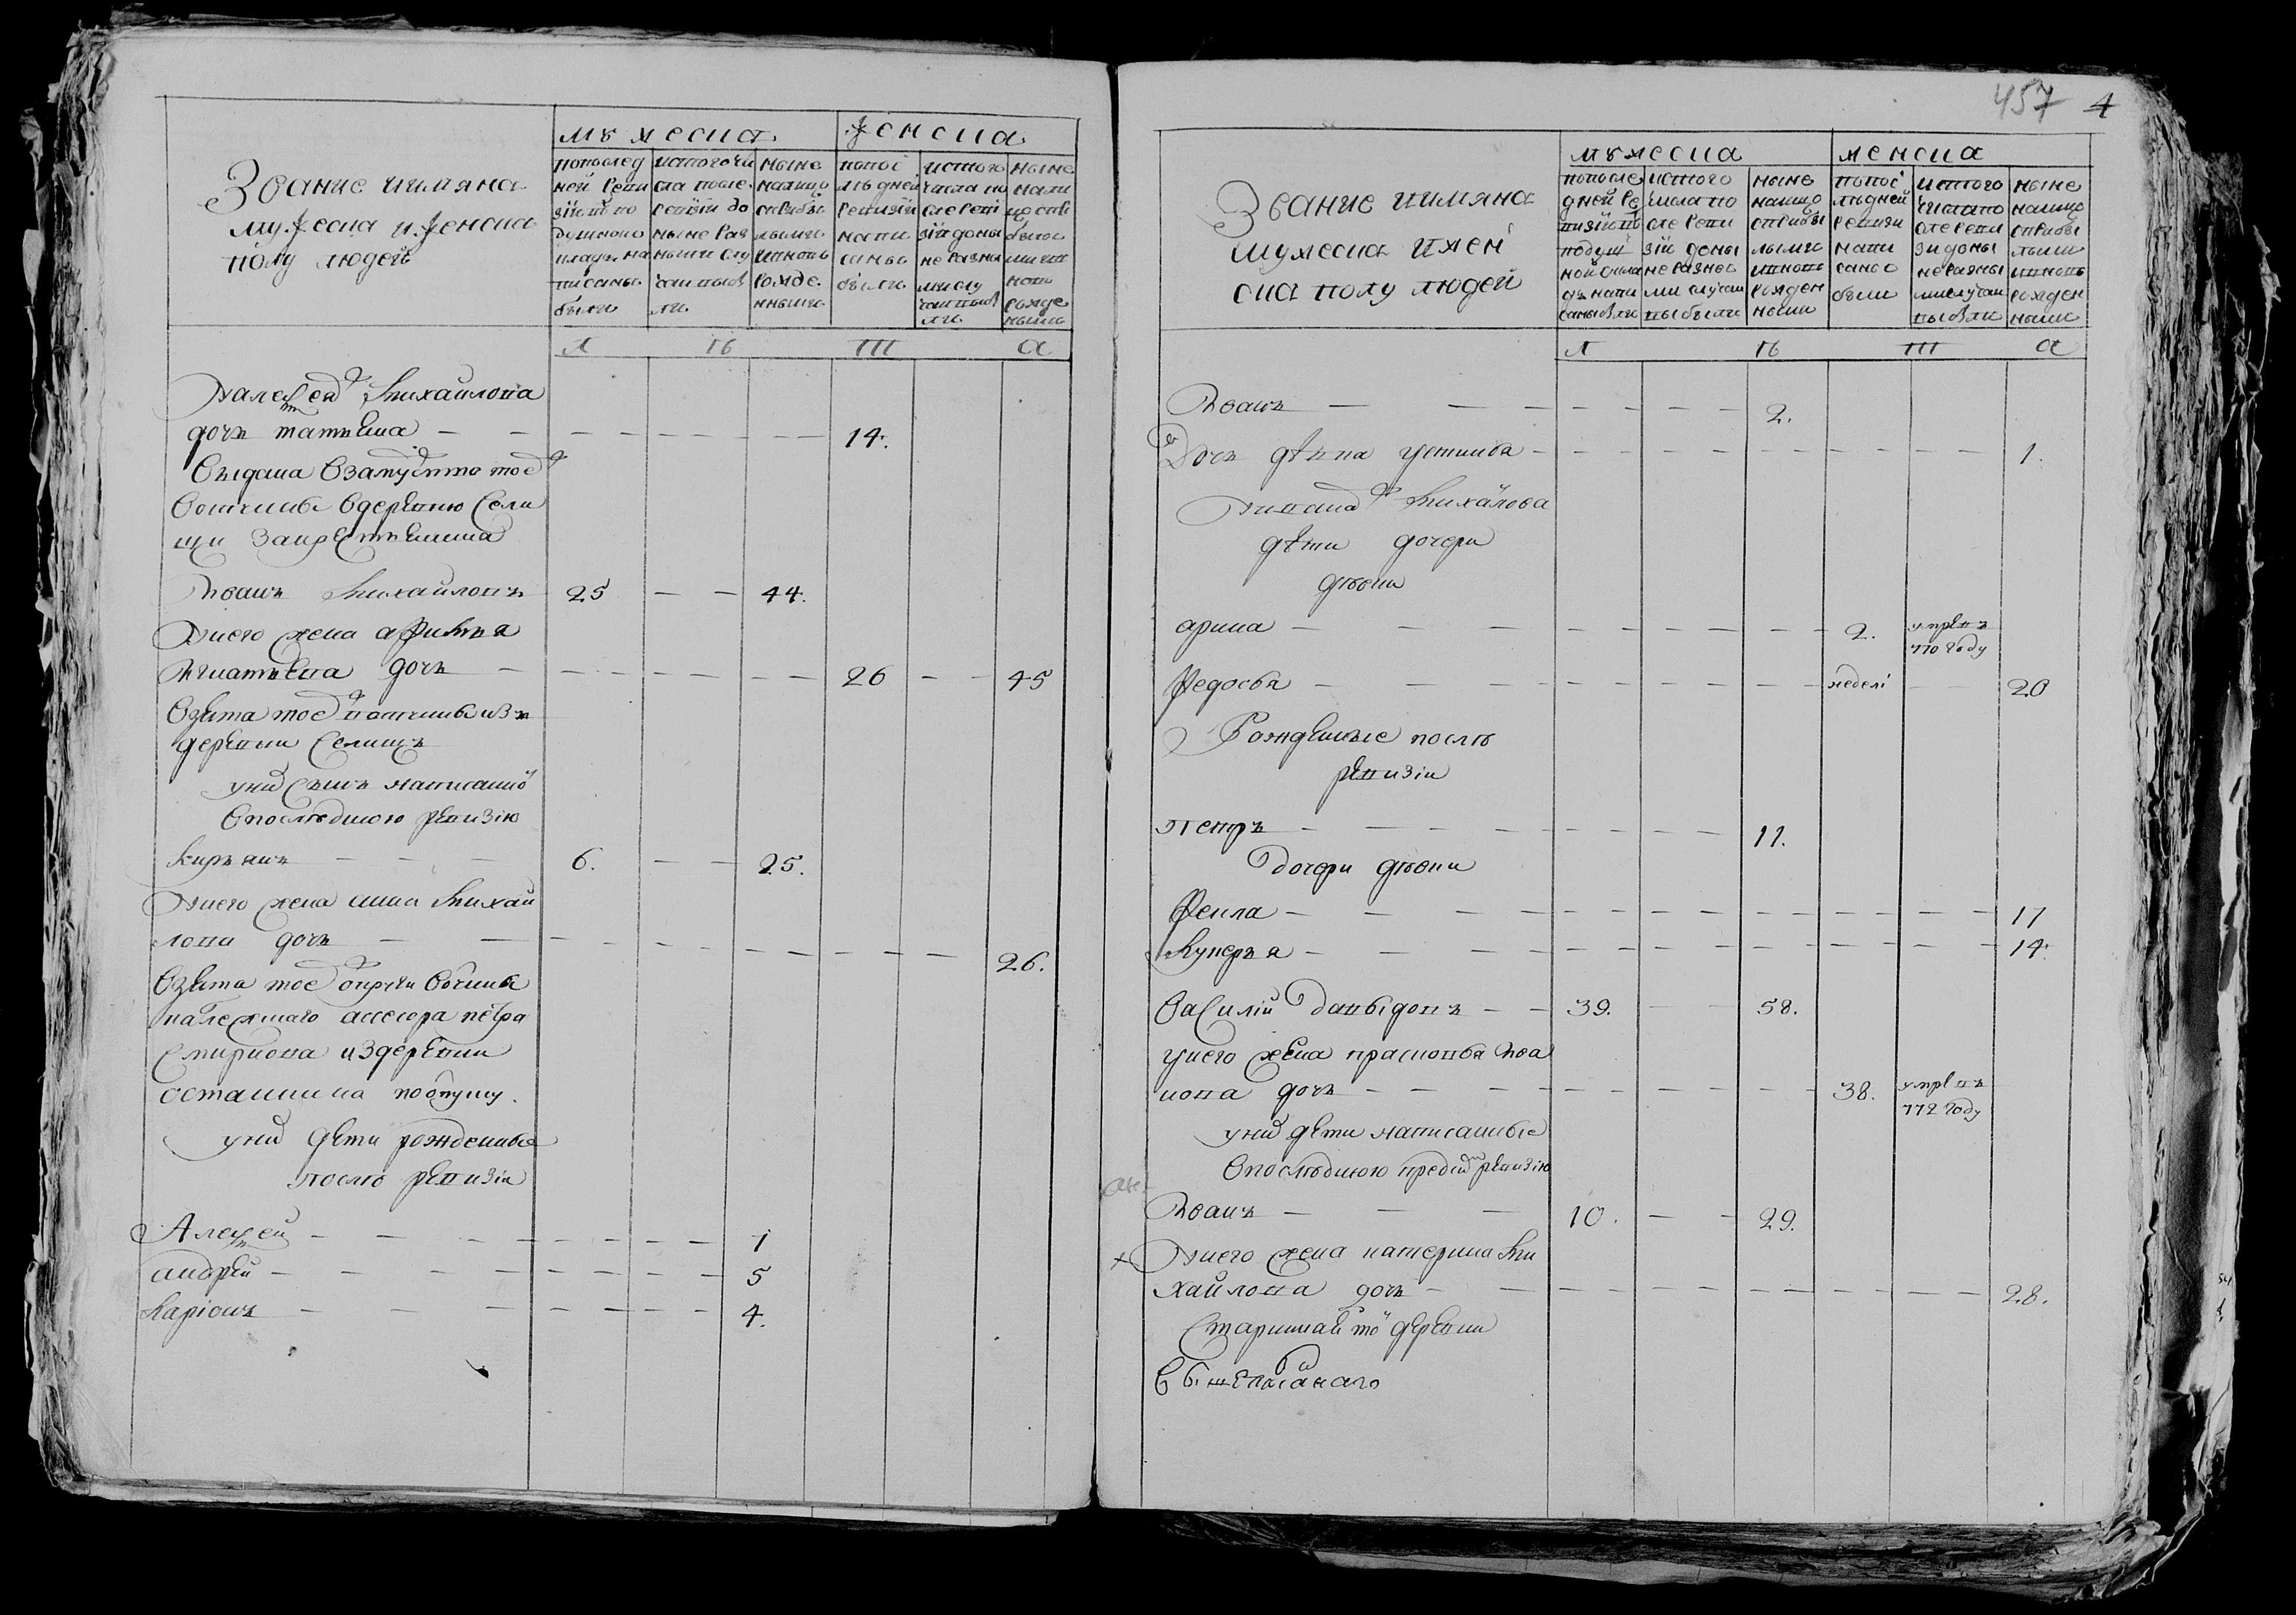 Звание иимяна
мужеска иженска
полу людей
мужеска
женска
попослед
ней реви
зии по
душному
писаны
были
истого чи
сла после
ревизии до
ныне раз
ными слу
чаи выбы
ли
ныне
налицо
сприбы
лыми
ивновь
рожде
нными
попос
ледней
ревизии
напи
саны
были
истого
числа по
сле реви
зии доны
не разны
ми слу
чаи выбы
ли
ныне
нали
цо спри
былы
ми ив
новь
рожде
ными
Л Ѣ Т А
Михайлова
дочь татьяна 14.
выдана взамужство тоеж
вотчины вдеревню Сели
щи закрестьянина
Иванъ Михайловъ 25 44.
Унего жена афимья
Игнатьева дочь 26 45
взята тоеж вотчины изъ
деревни Селищъ
уних сынъ написанной
впоследнюю ревизию
Кирьянъ 6. 25.
Унего жена анна Михай
лова дочь 26.
взята тоеж округи вотчины
належнаго ассесора петра
Смирнова издеревни
осташкина поотпуску.
уних дети рожденные
после ревизии
Алексей 1
андрей 5
Ларионъ 4.
457 4
Звание иимяна
мужеска ижен
ска полу людей
мужеска
женска
попосле
дней ре
визии
подуш
ной
напи
саны были
истого
числа по
сле реви
зии доны
не разны
ми случаи
выбыли
ныне
налицо
сприбы
лыми
ивновь
рожден
ными
попос
ледней
ревизи
напи
саны
были
истого
числа по
сле реви
зи доны
не разны
ми случаи
выбыли
ныне
налицо
сприбы
лыми
ивновь
рожден
ными
Л Ѣ Т А
Иванъ 2.
Дочь девка устинья 1.
Михайлова
дети дочери
девки
арина 2. умре въ
770 году
Федосья недели 20
Рожденные после
ревизии
Петръ 11.
Дочери девки
Фекла 17
Лукерья 14.
Василий Давыдовъ 39. 58.
унего жена прасковья Ива
нова дочь 38. умре въ
772 году
уних дети написанные
впоследнюю пред сим ревизию
Иванъ 10. 29.
Унего жена катерина Ми
хайлова дочь 28.
Стариннаяж той деревни